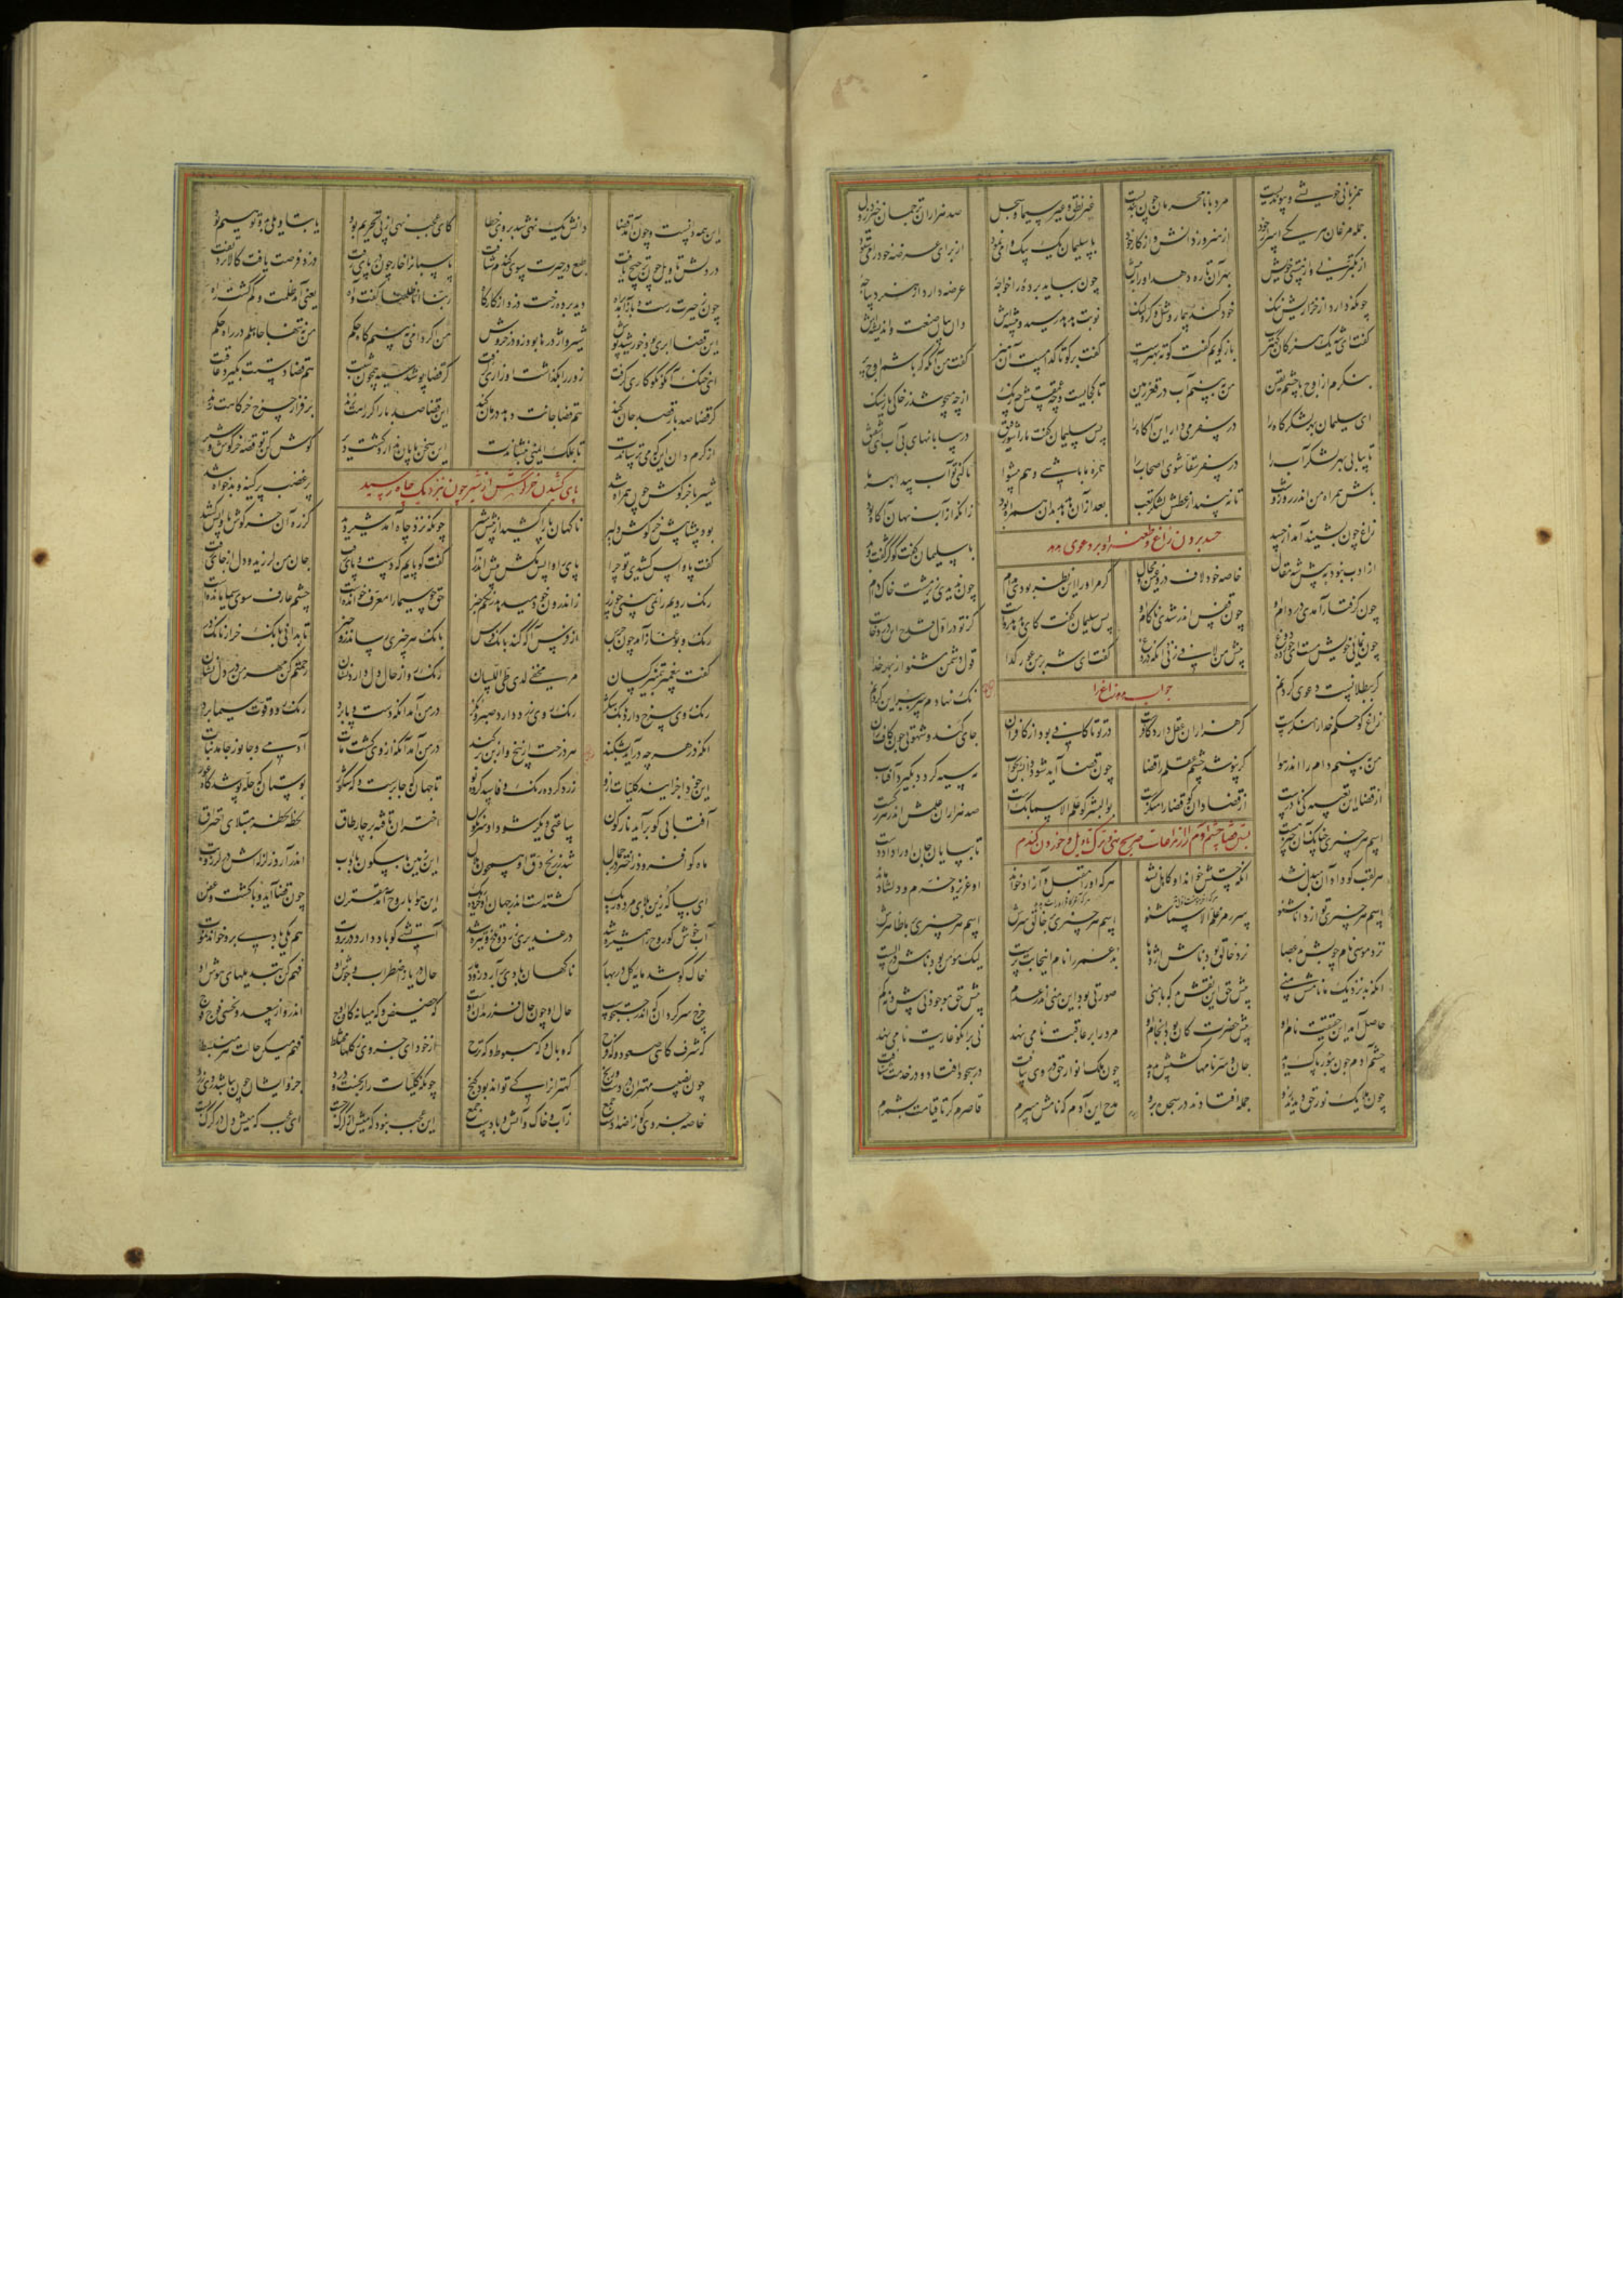 همزبانی خویشی و پیوندیست مرد با نامحرمان چون بندیست غیر نطق و غیر ایما و سجل صد هزاران ترجمان خیزد ز دل
جمله مرغان هر یکی اسرار خود از هنر وز دانش و از کار خود با سلیمان یک بیک وا می نمود از برای عرضه خود را می ستود
از تکبر نی و از هستی خویش بهر آن تا ره دهد او را به پیش چون بباید برده را خواجۀ عرضه دارد از هنر دیباجۀ
چونکه دارد از خریداریش ننگ خود کند بیمار و شل و کر و لنگ نوبت هدهد رسید و پیشه اش وان بیان صنعت و اندیشه اش
گفت ای شه یک هنر کان کهترست باز گویم گفت کوته بهترست گفت برگو تا کدامست آن هنر گفت من آنگه که باشم اوج بر
بنگرم از اوج با چشم یقین من ببینم آب در قعر زمین تا کجایست و چه عمقستش چه رنگ از چه میجوشد ز خاکی یا ز سنگ
ای سلیمان بهر لشکرگاه را در سفر می دار این آگاه را پس سلیمان گفت ما را شو رفیق در بیابانهای بی آب ای شفیق
تا بیابی بهر لشکر آب را در سفر سقا شوی اصحاب را همره ما باشی و هم پیشوا تا کنی تو آب پیدا بهر ما
باش همراه من اندر روز و شب تا نبیند از عطش لشکر تعب بعد ازان هدهد بدان همراه بود زانکه از آب نهان آگاه بود
حسد بردن زاغ و طعنه او بر دعوی هدهد
زاغ چون بشنید آمد از حسد با سلیمان گفت کو کژ گفت و بد
از ادب نبود به پیش شه مقال خاصه خود لاف دروغین و محال گر مر او را این نظر بودی مدام چون ندیدی زیر مشت خاک دام
چون گرفتار آمدی در دام او چون قفس اندر شدی ناکام او پس سلیمان گفت کای هدهد رواست کز تو در اول قدح این درد خاست
چون نمایی خویش مست ای خورده دوغ پیش من لافی زنی آنگه دروغ گفت ای شه بر من عور گدا قول دشمن مشنو از بهر خدا
جواب هدهد زاغ را
گر ببطلانست دعوی کردنم نک نهادم سر ببر این گردنم
زاغ کو حکم خدا را منکرست گر هزاران عقل دارد کافرست در تو تا کافی بود از کافران جای گند و شهوتی چون کاف ران
من ببینم دام را اندر هوا گر نپوشد چشم عقلم را قضا چون قضا آید شود دانش بخواب مه سیه گردد بگیرد آفتاب
از قضا این تعبیه کی نادرست از قضا دان کو قضا را منکرست بوالبشر کو علم الاسما بگست صد هزاران علمش اندر هر رگست
بستن قضا چشم آدم را از مراعات صریح نهی و ترک تاویل و خوردن گندم
اسم هر چیزی چنان کان چیز هست تا بپایان جان او را داد دست
هر لقب کو داد آن مبدل نشد آنکه چستش خواند او کاهل نشد هر که او را مقبل و آزاد خواند او عزیز و خرم و دلشاد ماند
اسم هر چیزی تو از دانا شنو سر رمز علم الاسما شنو اسم هر چیزی بر ما ظاهرش اسم هر چیزی بر خالق سرش
نزد موسی نام چوبش بد عصا نزد خالق بود نامش اژدها بد عمر را نام اینجا بت پرست لیک مؤمن بود نامش در الست
آنکه بد نزدیک ما نامش منی پیش حق این نقش بد که با منی صورتی بود این منی اندر عدم پیش حق موجود نی بیش و نه کم
حاصل آمد آن حقیقت نام ما پیش حضرت کان بود انجام ما مرد را بر عاقبت نامی نهد نی بر آنکو عاریت نامی نهد
چشم آدم چون بنور پاک دید جان و سر نامها گشتش پدید چون ملک انوار حق در وی بیافت در سجود افتاد و در خدمت شتافت
چون ملایک نور حق دیدند ازو جمله افتادند در سجده برو مدح این آدم که نامش میبرم قاصرم گر تا قیامت بشمرم
این همه دانست و چون آمد قضا دانش یک نهی شد بر وی خطا کای عجب نهی از پی تحریم بود یا بتاویلی بد و توهیم بود
در دلش تاویل چون ترجیح یافت طبع در حیرت سوی گندم شتافت باغبانرا خار چون در پای رفت دزد فرصت یافت کالا برد تفت
چون ز حیرت رست باز آمد براه دید برده دزد رخت از کارگاه ربنا انا ظلمنا گفت و آه یعنی آمد ظلمت و گم گشت راه
این قضا ابری بود خورشید پوش شیر و اژدرها بود زو در خروش من اگر دامی نبینم گاه حکم من نه تنها جاهلم در راه حکم
ای خنک آنکو نکوکاری گرفت زور را بگذاشت او زاری گرفت گر قضا پوشد سیه همچون شبت هم قضا دستت بگیرد عاقبت
گر قضا صد بار قصد جان کند هم قضا جانت دهد درمان کند این قضا صد بار اگر راهت زند بر فراز چرخ خرگاهت زند
از کرم دان این که می ترساندت تا بملک ایمنی بنشاندت این سخن پایان ندارد گشت دیر گوش کن تو قصه خرگوش و شیر
پای کشیدن خرگوش از شیر چون نزدیک چاه رسید
شیر با خرگوش چون همراه شد پر غضب پر کینه و بدخواه شد
بود پیشاپیش خرگوش دلیر ناگهان پا را کشید از پیش شیر چونکه نزد چاه آمد شیر دید کز ره آن خرگوش ماند و پا کشید
گفت پا واپس کشیدی تو چرا پای را واپس مکش پیش اندرآ گفت کو پایم که دست و پای رفت جان من لرزید و دل از جای رفت
رنگ رویم را نمی بینی چو زر ز اندرون خود میدهد رنگم خبر حق چو سیما را معرف خوانده است چشم عارف سوی سیما مانده است
رنگ و بو غماز آمد چون جرس از فرس آگه کند بانگ فرس بانگ هر چیزی رساند زو خبر تا بدانی بانگ خر از بانگ در
گفت پیغمبر به تمییز کسان مرء مخفی لدی طی اللسان رنگ رو از حال دل دارد نشان رحمتم کن مهر من در دل نشان
رنگ روی سرخ دارد بانگ شکر رنگ روی زرد دارد صبر و نکر در من آمد آنکه دست و پا برد رنگ رو و قوت سیما برد
آنکه در هر چه درآید بشکند هر درخت از بیخ و از بن بر کند در من آمد آنکه از وی گشت مات آدمی و جانور جامد نبات
این خود اجزا اند کلیات ازو زرد کرده رنگ و فاسد کرده بو تا جهان گه صابرست و گه شکور بوستان گه حله پوشد گاه عور
آفتابی کو برآید نارگون ساعتی دیگر شود او سرنگون اختران تافته بر چار طاق لحظه لحظه مبتلای احتراق
ماه کو افزود ز اختر در جمال شد ز رنج دق او همچون هلال این زمین با سکون با ادب اندر آرد زلزله اش در لرز تب
ای بسا که زین بلای مرده ریگ گشته است اندر جهان او خرد و ریگ این هوا با روح آمد مقترن چون قضا آید وبا گشت و عفن
آب خوش کو روح را همشیره شد در غدیری زرد و تلخ و تیره شد آتشی کو باد دارد در بروت هم یکی بادی برو خواند یموت
خاک کو شد مایه گل در بهار ناگهان بادی برآرد زو دمار حال دریا ز اضطراب و جوش او فهم کن تبدیلهای هوش او
چرخ سرگردان که اندر جست و جوست حال او چون حال فرزندان اوست گه حضیض و گه میانه گاه اوج اندرو از سعد و نحسی فوج فوج
گه شرف گاهی صعود و گه فرح گه وبال و گه هبوط و گه ترح از خود ای جزوی ز کلها مختلط فهم میکن حالت هر منبسط
چون نصیب مهتران دردست و رنج کهتران را کی تواند بود گنج چونکه کلیات را رنجست و درد جزو ایشان چون نباشد روی زرد
خاصه جزوی کو ز اضدادست جمع ز آب و خاک و آتش و بادست جمع این عجب نبود که میش از گرگ جست این عجب که میش دل در گرگ بست